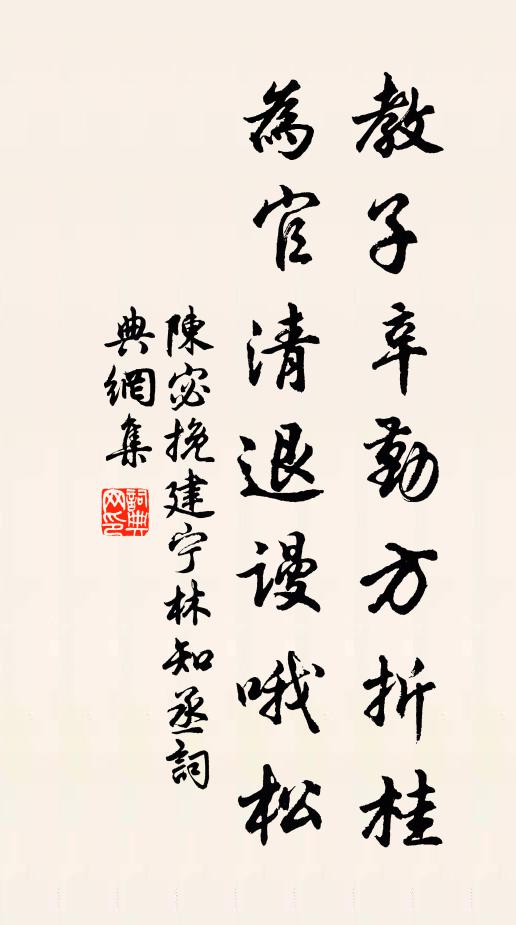 教子辛勤方折桂
為官清退謾哦松
陳宓挽建宁林知丞詞
典網集
詞典网印